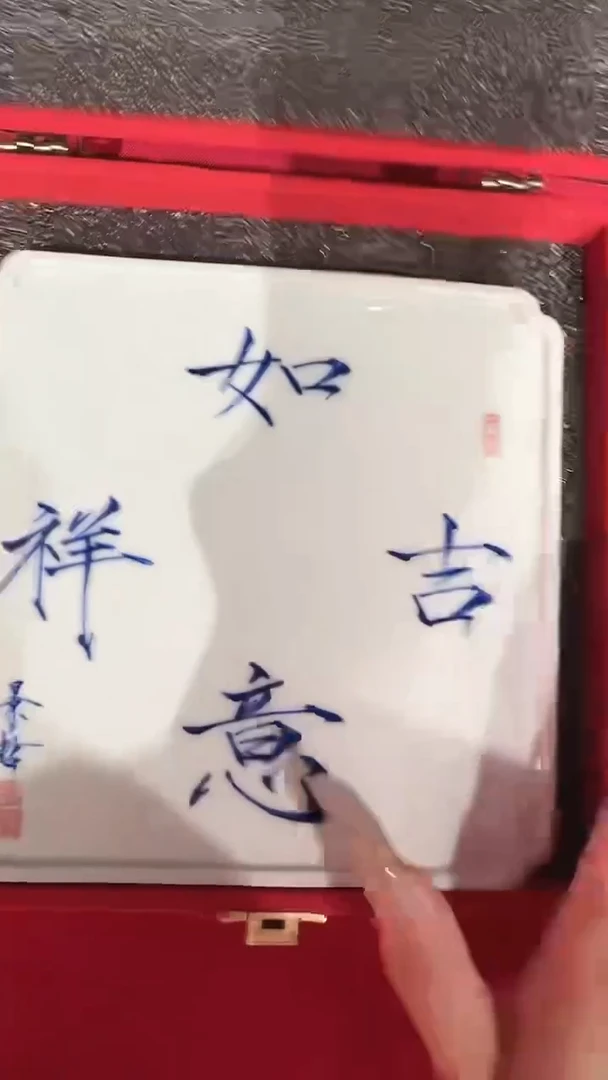 吉祥
如意